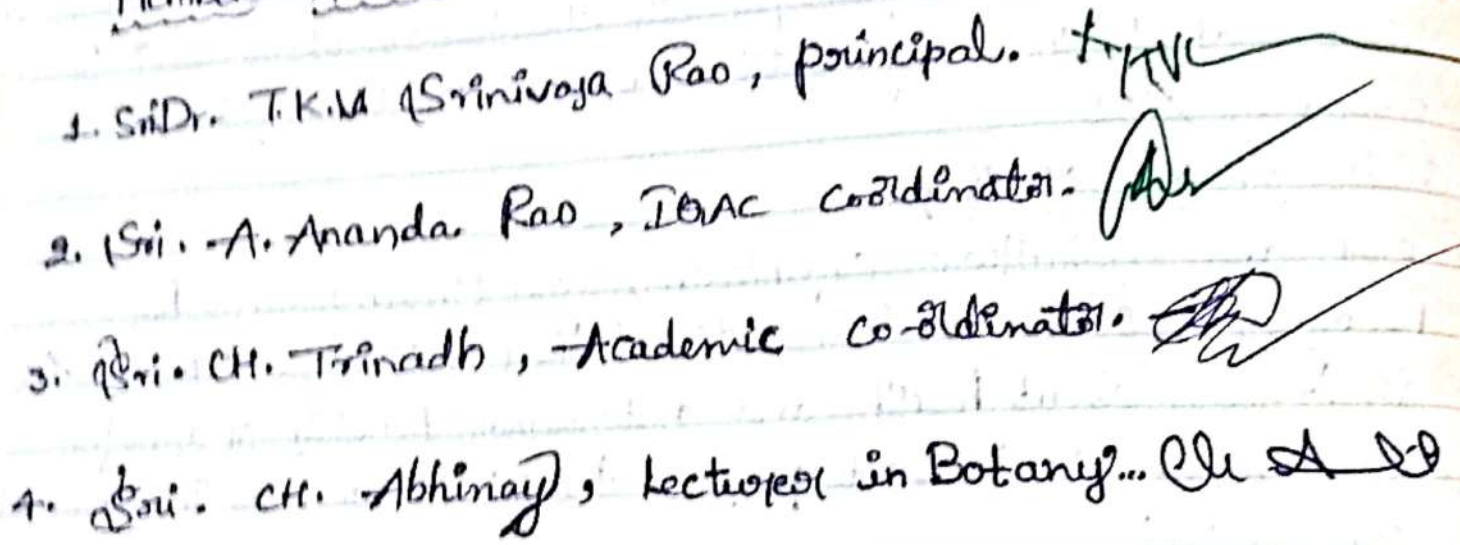 1. SriDr. T.K.V Srinivasa Rao, principal.
2. Sri. A. Ananda Rao, IQAC coordinator.
3. Sri. CH. Trinadh, Academic co-ordinator.
4. Sri. CH. Abhinay, Lecturer in Botany...